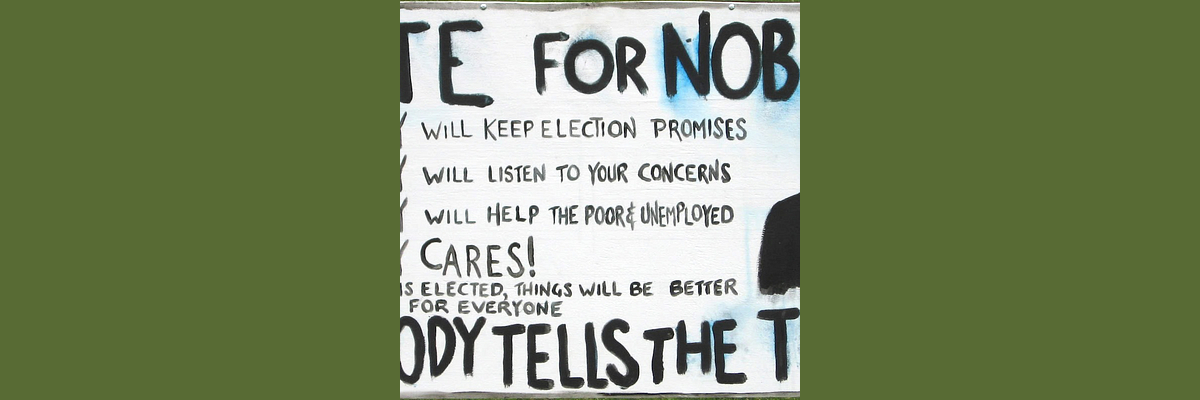 TE FOR NOB
Y WILL KEEP ELECTION PROMISES
Y WILL LISTEN TO YOUR CONCERNS
Y WILL HELP THE POOR & UNEMPLOYED
Y CARES!
IS ELECTED, THINGS WILL BE BETTER
FOR EVERYONE
ODY TELLS THE T